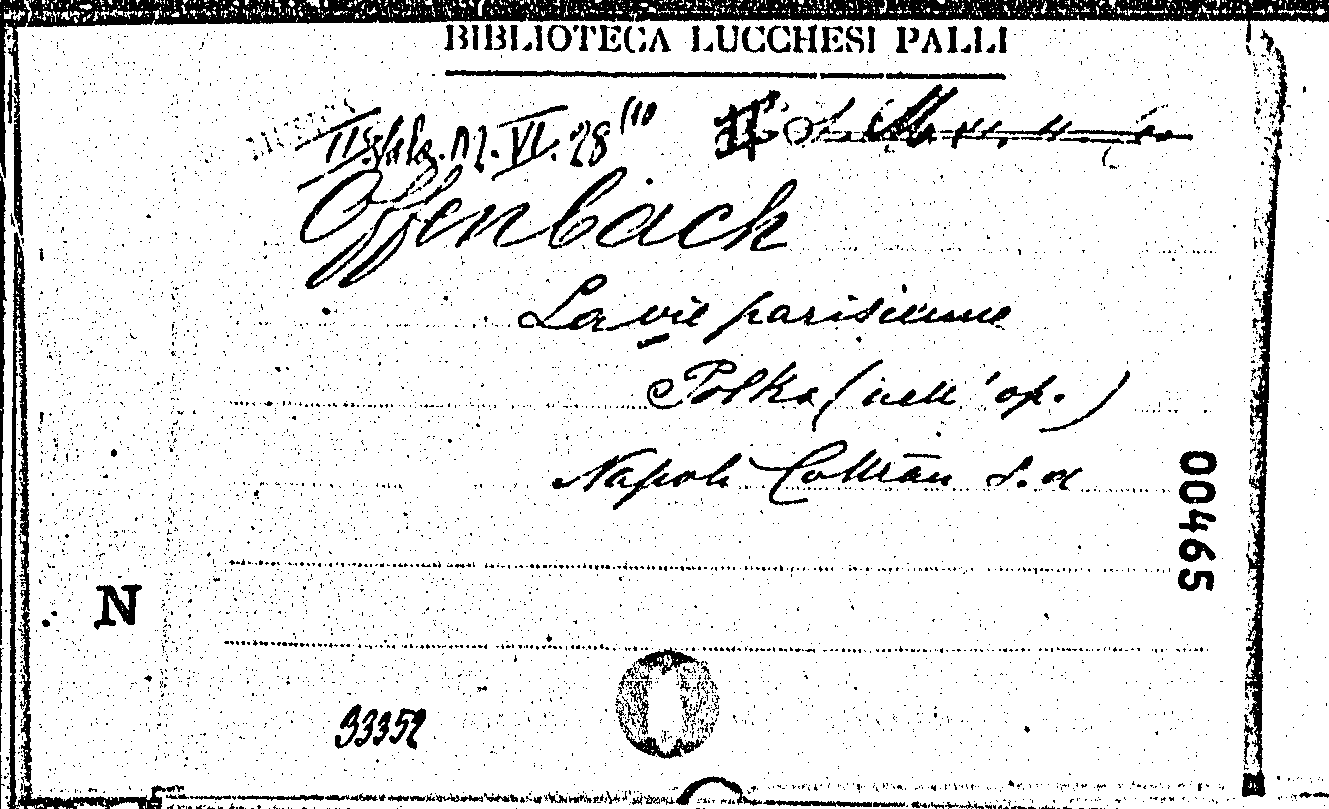 BIBLIOTECA LUCCHESI PALLI
VI. 28
Offenbach
La vie parisienne
Polka (nell' op.)
Napoli Cottrau s. a
00465
N
93352